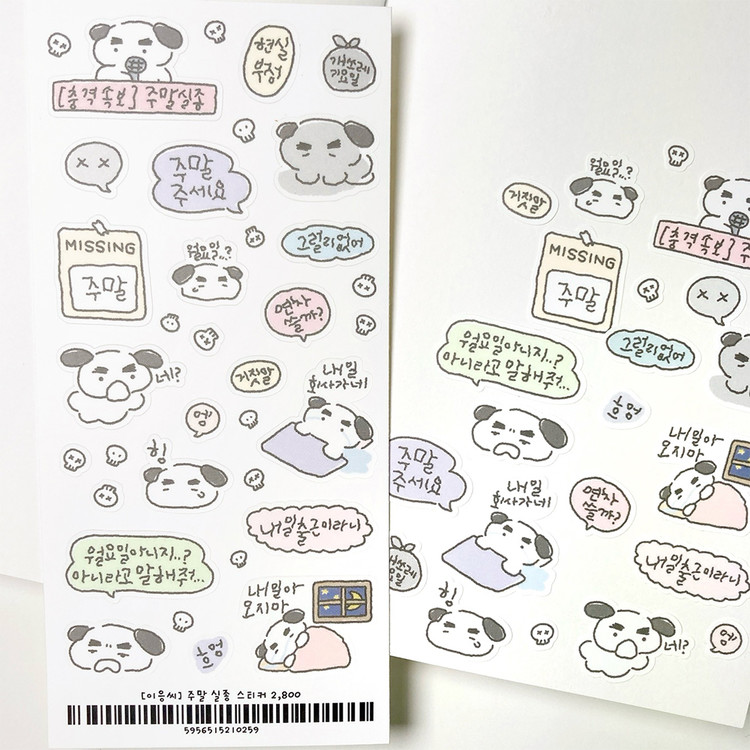 현실
부정
개쓰레
기요일
[충격속보] 주말실종
x x
주말
주세요
MISSING
주말
월요일..?
그럴리없어
연차
쓸까?
네?
거짓말
내일
회사가네
엥
힝
내일출근이라니
월요일아니지..?
아니라고 말해줘...
내일아
오지마
흐엉
[이응씨] 주말 실종 스티커 2,800
5956515210259
월요일..?
거짓말
[충격속보] 주
MISSING
주말
x x
월요일아니지..?
아니라고 말해줘...
그럴리없어
흐엉
주말
주세요
내일아
오지마
내일
회사가네
연차
쓸까?
개쓰레
기요일
내일출근이라니
힝
네?
엥